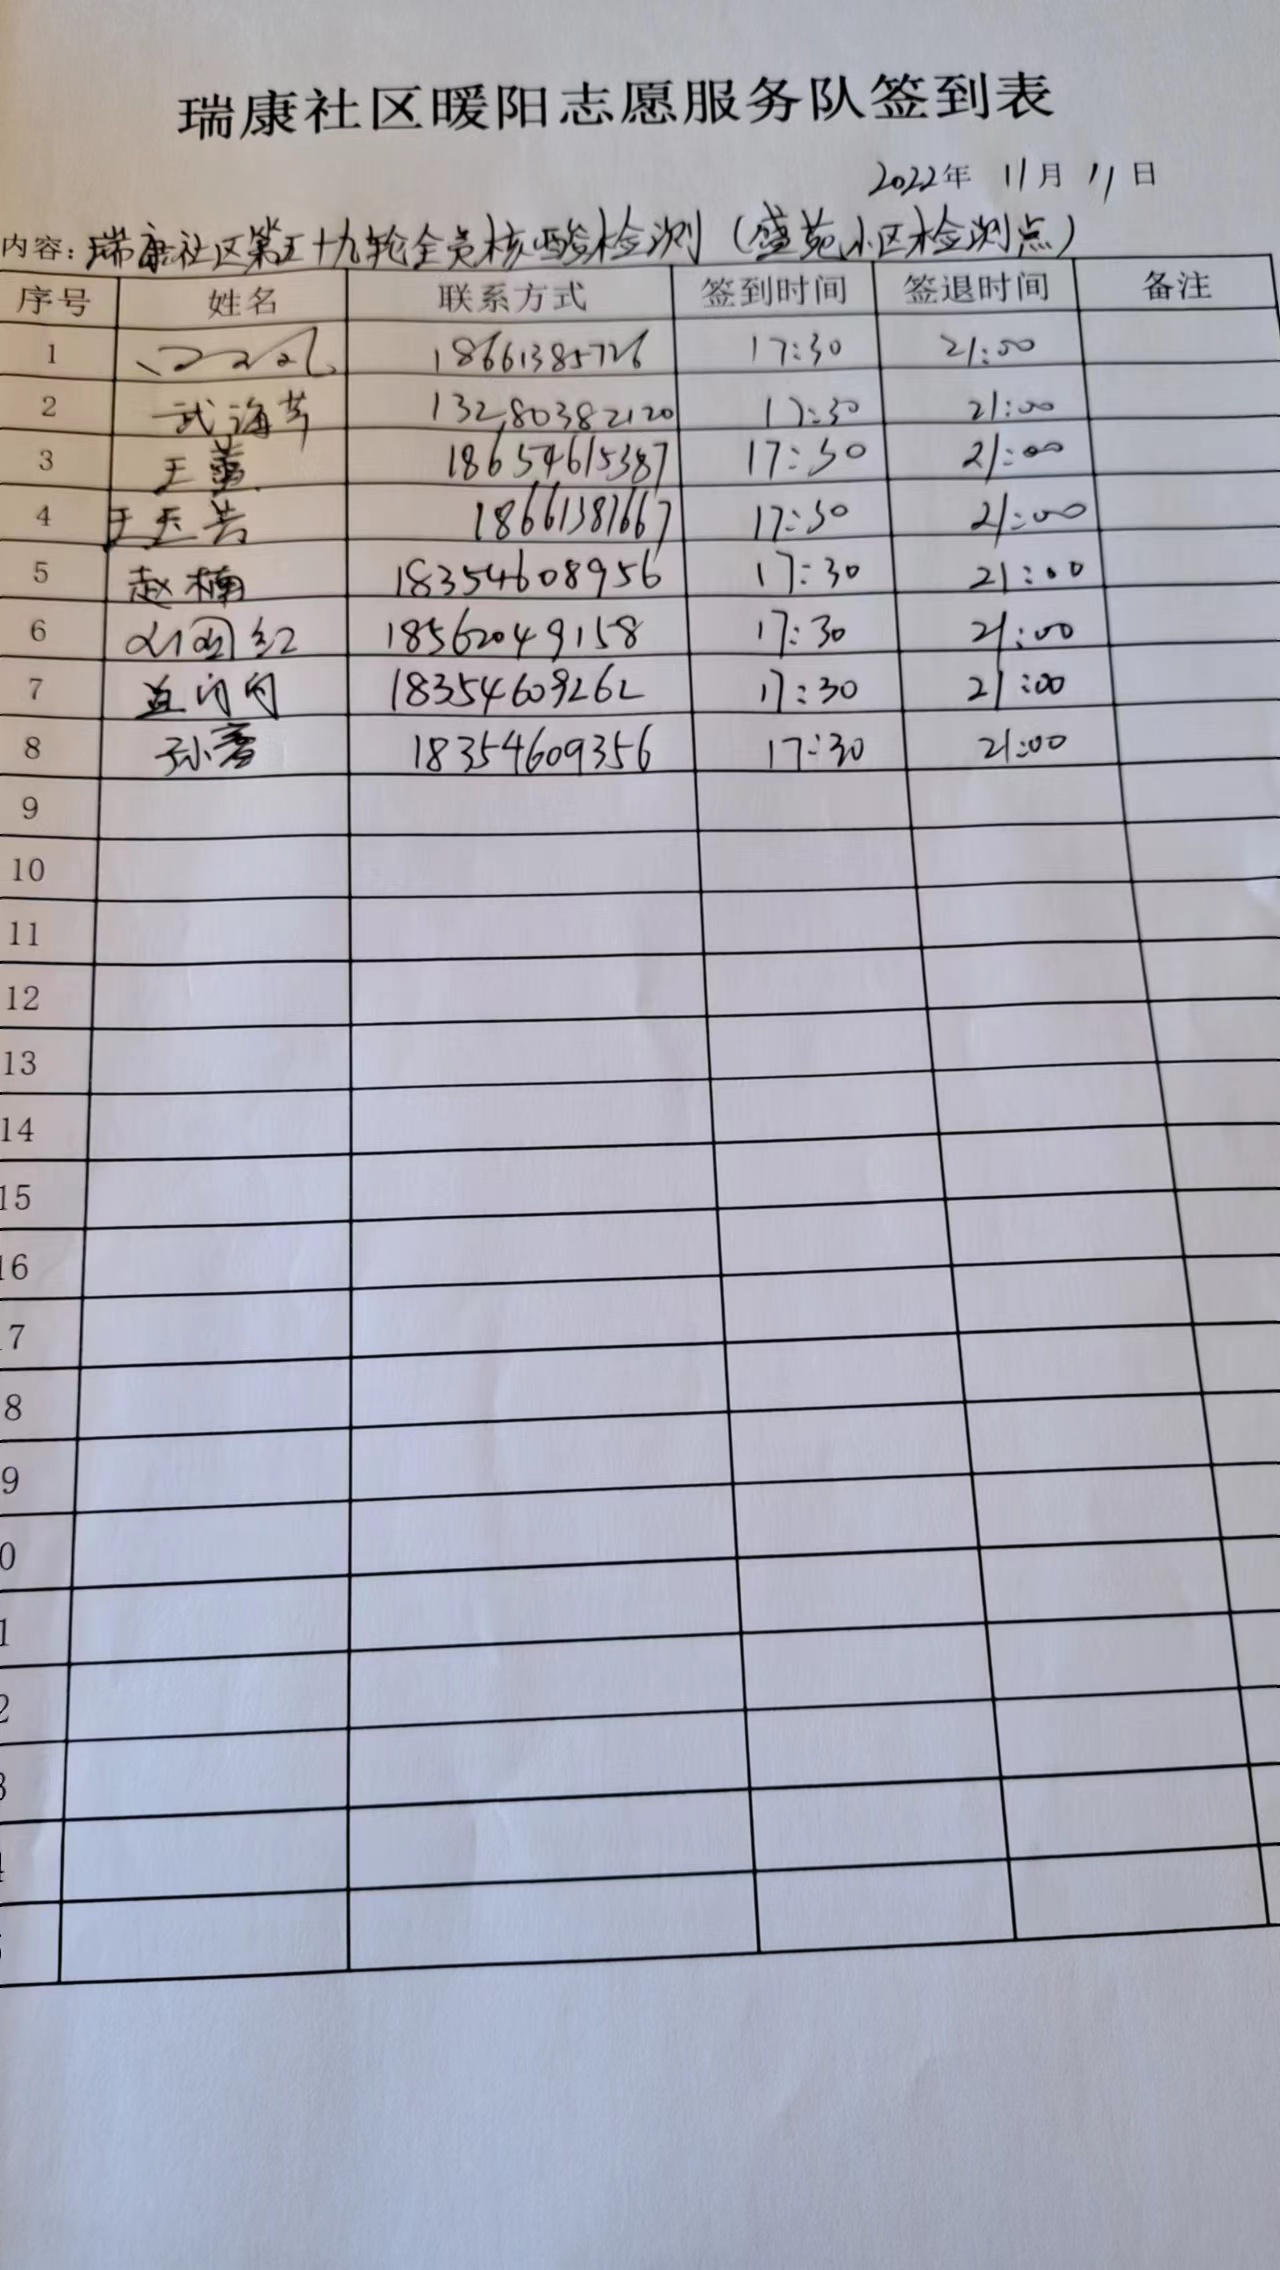 瑞康社区暖阳志愿服务队签到表
2022年 11月 11日
内容：瑞康社区第五十九轮全员核酸检测（盛苑小区检测点）
序号 姓名 联系方式 签到时间 签退时间 备注
1 18661385726 17:30 21:00
2 武海芹 13280382120 17:30 21:00
3 王萱 18654615387 17:30 21:00
4 18661381667 17:30 21:00
5 赵楠 18354608956 17:30 21:00
6 18562049158 17:30 21:00
7 18354609262 17:30 21:00
8 18354609356 17:30 21:00
9
10
11
12
13
14
15
16
7
8
9
0
1
2
3
4
5